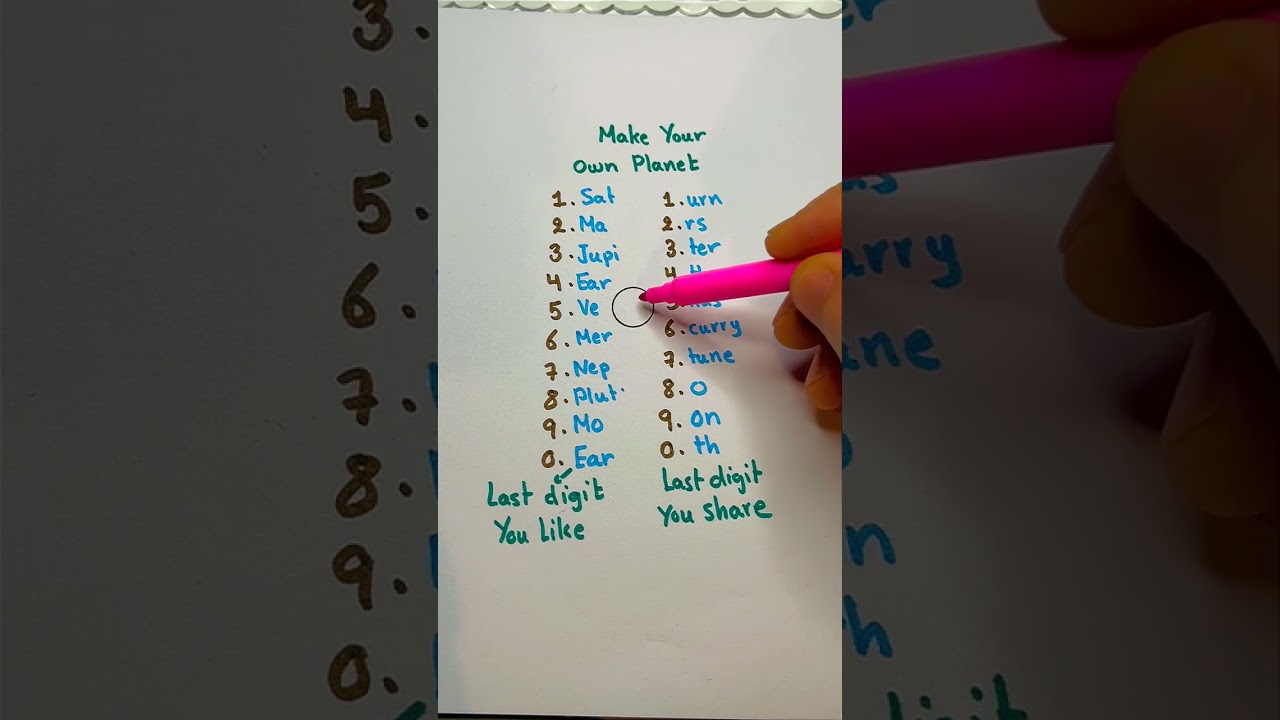 Make Your
Own Planet
1. Sat
2. Ma
3. Jupi
4. Ear
5. Ve
6. Mer
7. Nep
8. Plut
9. Mo
0. Ear
Last digit
You Like
1. urn
2. rs
3. ter
4.
5.
6. curry
7. tune
8. O
9. on
0. th
Last digit
You share